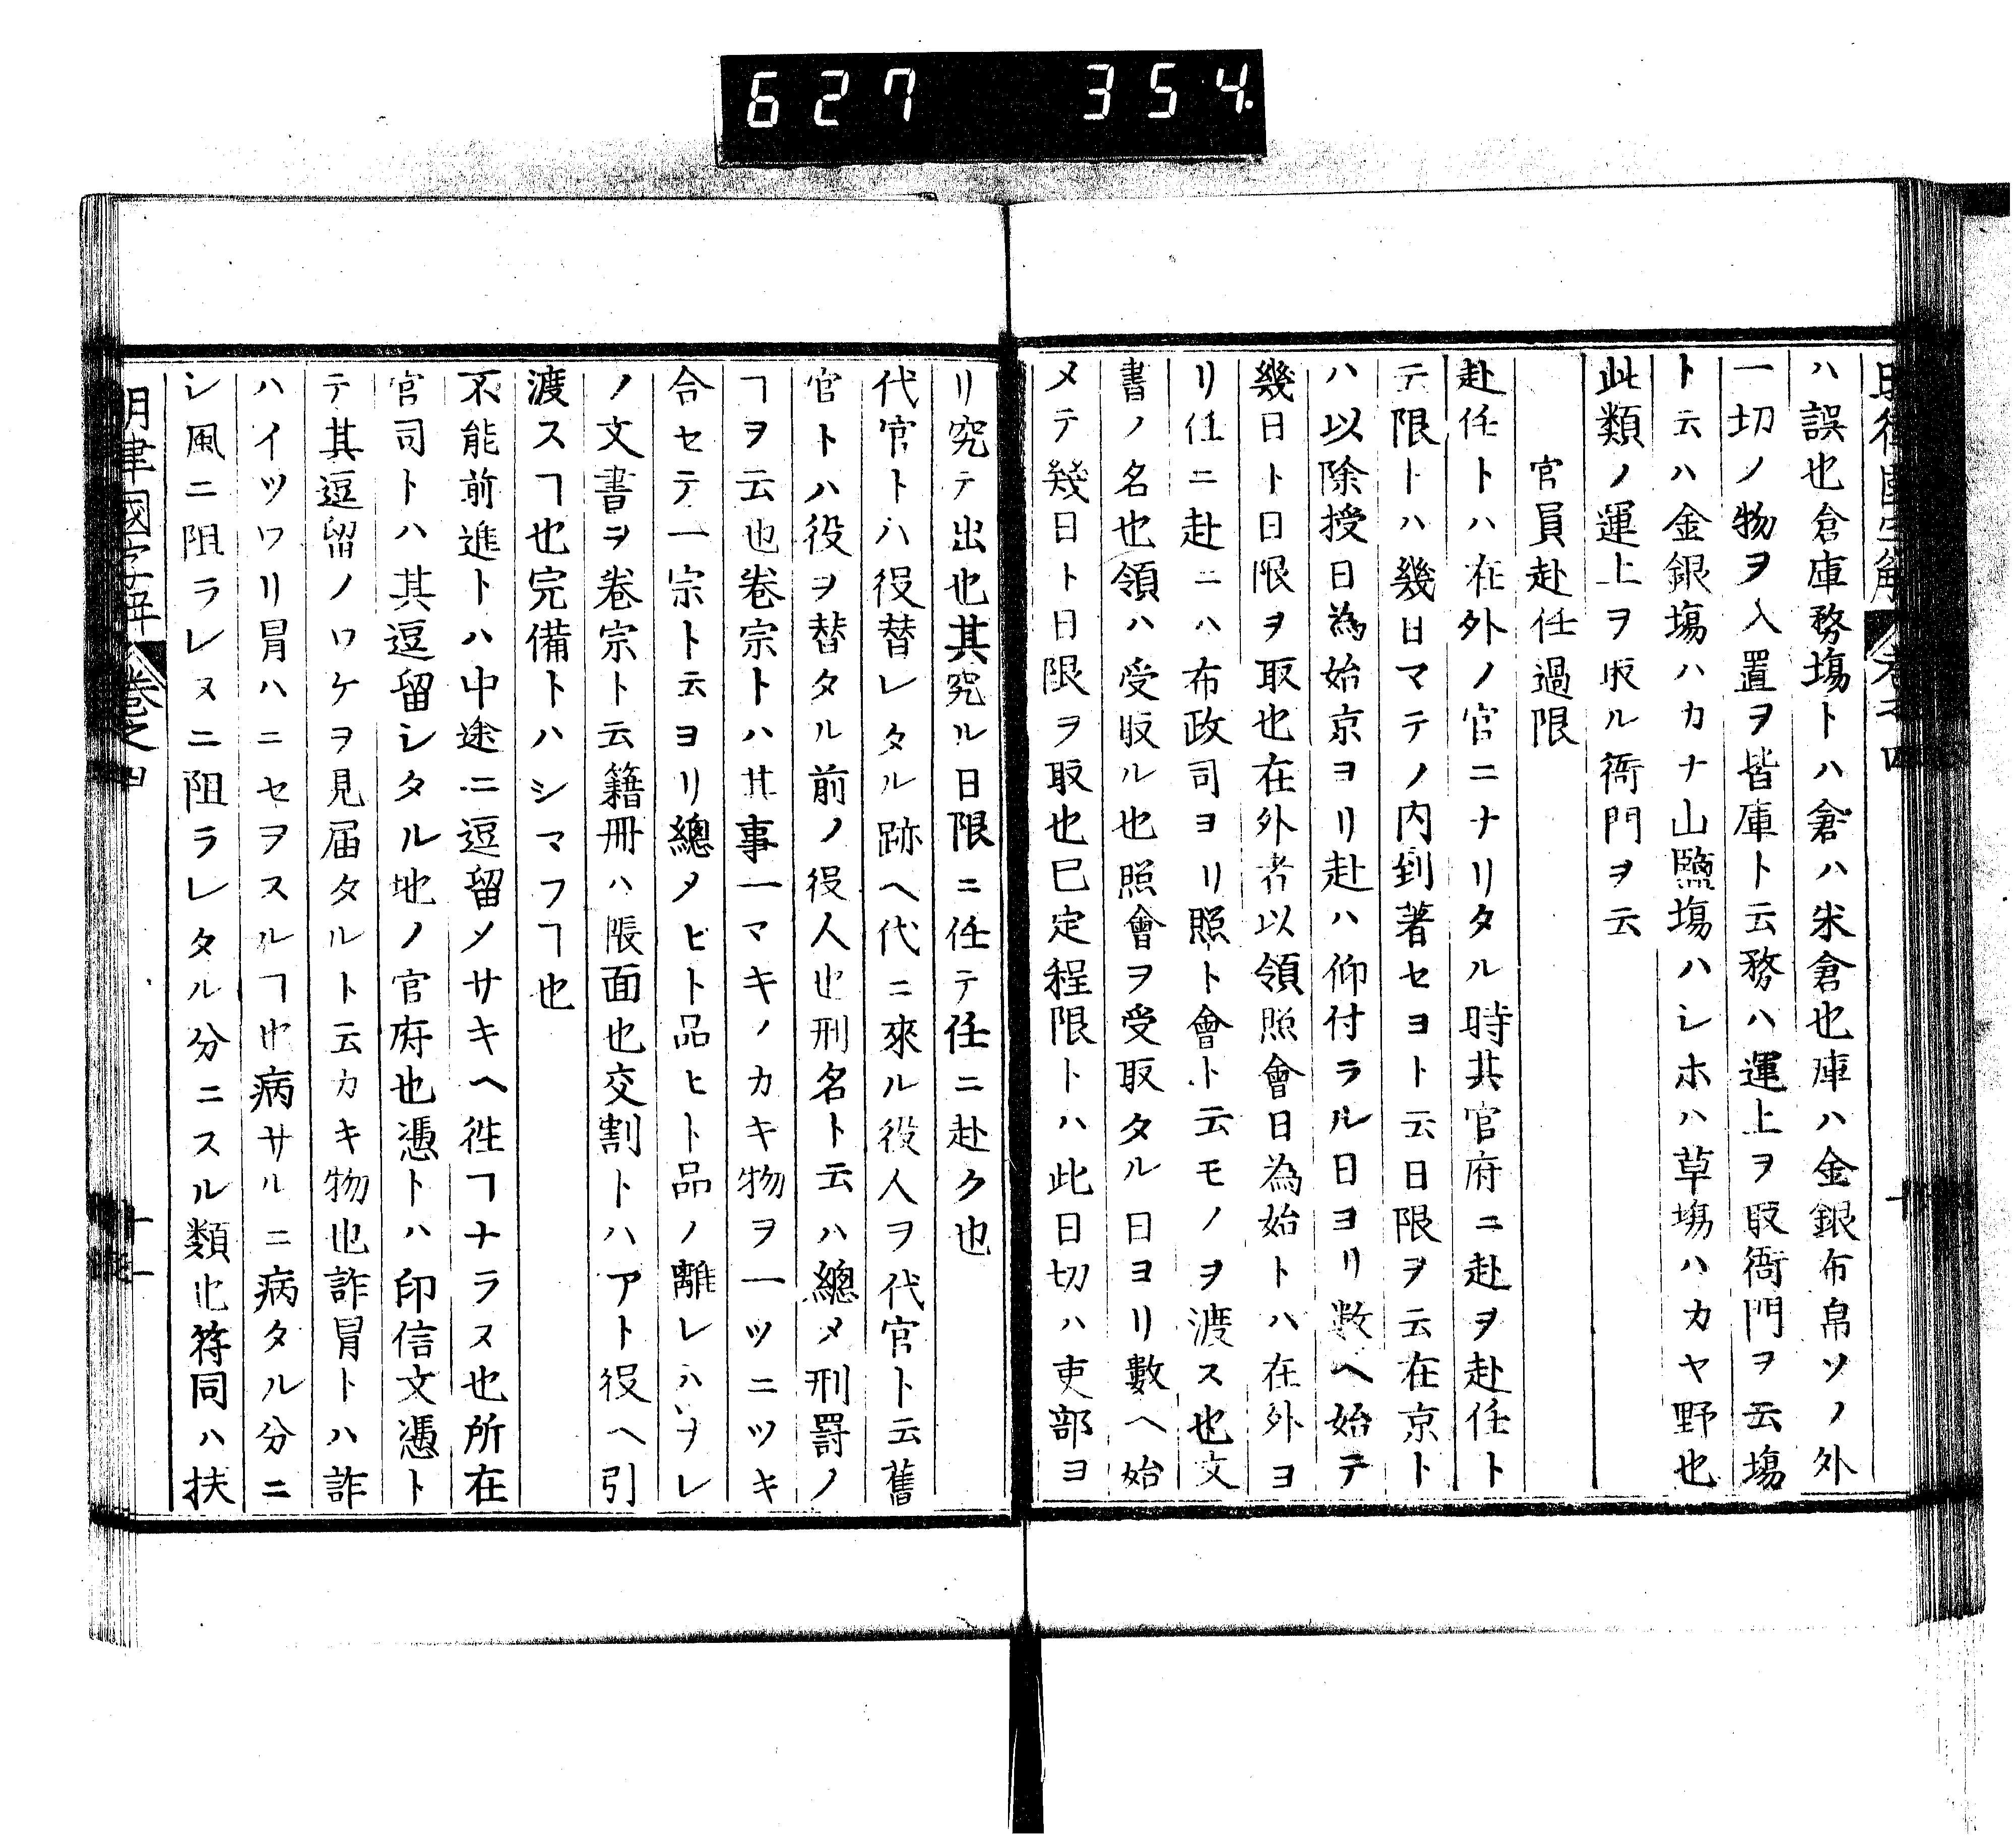 627 354
明律國字解 卷之四 十
ハ誤也倉庫務塲トハ倉ハ米倉也庫ハ金銀布帛ソノ外
一切ノ物ヲ入置ヲ皆庫ト云務ハ運上ヲ取衙門ヲ云塲
ト云ハ金銀塲ハカナ山鹽塲ハシホハ草塲ハカヤ野也
此類ノ運上ヲ取ル衙門ヲ云
官員赴任過限
赴任トハ在外ノ官ニナリタル時其官府ニ赴ヲ赴任ト
云限トハ幾日マテノ内到著セヨト云日限ヲ云在京ト
ハ以除授日為始京ヨリ赴ハ仰付ラル日ヨリ数ヘ始テ
幾日ト日限ヲ取也在外者以領照會日為始トハ在外ヨ
リ任ニ赴ニハ布政司ヨリ照ト會ト云モノヲ渡ス也文
書ノ名也領ハ受取ル也照會ヲ受取タル日ヨリ數ヘ始
メテ幾日ト日限ヲ取也已定程限トハ此日切ハ吏部ヨ
リ究テ出也其究ル日限ニ任テ任ニ赴ク也
代官トハ役替レタル跡ヘ代ニ來ル役人ヲ代官ト云舊
官トハ役ヲ替タル前ノ役人也刑名ト云ハ總メ刑罸ノ
ヿヲ云也卷宗トハ其事一マキノカキ物ヲ一ツニツキ
合セテ一宗ト云ヨリ總メヒト品ヒト品ノ離レハヲレ
ノ文書ヲ卷宗ト云籍冊ハ帳面也交割トハアト役ヘ引
渡スヿ也完備トハシマフヿ也
不能前進トハ中途ニ逗留メサキヘ徃ヿナラヌ也所在
官司トハ其逗留シタル地ノ官府也憑トハ印信文憑ト
テ其逗留ノワケヲ見届タルト云カキ物也詐冒トハ詐
ハイツワリ冒ハニセヲスルヿ也病サルニ病タル分ニ
シ風ニ阻ラレヌニ阻ラレタル分ニスル類也符同ハ扶
明律國字解 卷之四 十一